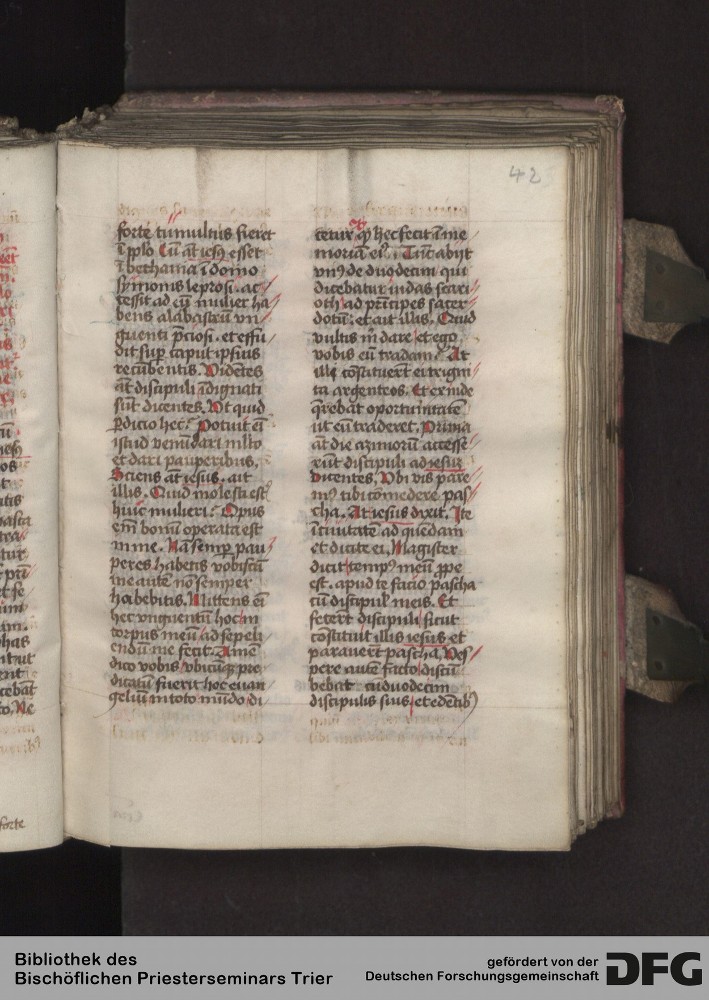 42
forte tumultus fieret
ī pplo Cū āt iesꝰ esset
ī bethania ī domo
symonis leprosi. ac/
cessit ad eū mulier ha/
bens alabastrū vn/
guenti p̄ciosi. et effu/
dit suꝑ caput ipsius
recūbentis. Videtes
āt discipuli īdignati
sūt dicentes. Vt quid
ꝑdicio hec? Potuit eī
istud venūdari mlto
et dari pauperibus.
Sciens āt iesus. ait
illis. Quid molesti estꝭ
huic mulieri? Opus
em̄ bonū operata est
in me. Nā semꝑ pau/
peres habetis vobiscū
me autē nō semper
habebitis. Mittens eī
hec vnguentū hoc in
corpus meū ad sepeli
endū me fecit. Amē
dico vobis vbicūqꝫ pre
dicatū fuerit hoc euan
geliū in toto mūdo di
cetur et qꝫ hec fecit ī me
moriam eiꝰ. Tūc abijt
vnꝰ de duodecim qui
dicebatur iudas scari
oth ad p̄ncipes sacer
dotū. et ait illis. Quid
vultis m̄ dare et ego
vobis eū tradam? At
illi cōstituert ei trigin
ta argenteos. Et exinde
q̄rebat oportunitatē
ut eū traderet. Prima
āt die azimorū accesse
rūt discipuli ad iesuꝫ
dicentes. Vbi vis pare
mꝰ tibi comedere pas
cha. At iesus dixit. Ite
ī ciuitatē ad quēdam
et dicite ei. Magister
dicit tempꝰ meū ꝓpe
est. apud te facio pascha
cū discipulꝭ meis. Et
fecert discipuli sicut
cōstituit illis iesus et
parauert pascha. Ves
pere autē facto discū
bebat cū duodecim
discipulis suis et edētibꝰ
forte
Bibliothek des
Bischöflichen Priesterseminars Trier
gefördert von der
Deutschen Forschungsgemeinschaft
DFG